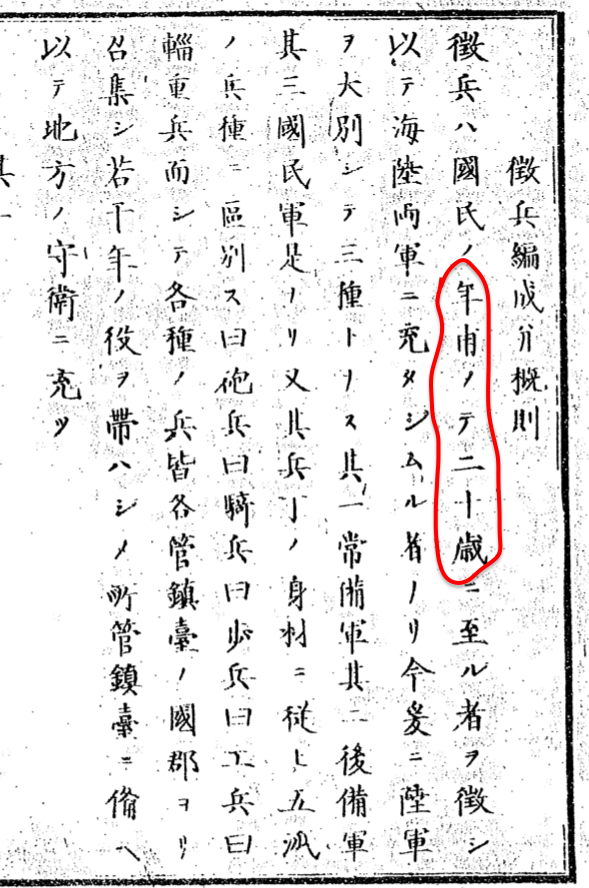 徴兵編成并概則
徴兵ハ國民ノ年甫メテ二十歳ニ至ル者ヲ徴シ
以テ海陸両軍ニ充タシムル者ナリ今爰ニ陸軍
ヲ大別シテ三種トナス其一常備軍其二後備軍
其三國民軍是ナリ又其兵丁ノ身材ニ従ヒ五派
ノ兵種ニ區別ス曰砲兵曰騎兵曰歩兵曰工兵曰
輜重兵而シテ各種ノ兵皆各管鎮臺ノ國郡ヨリ
召集シ若干年ノ役ヲ帯ハシメ所管鎮臺ニ備ヘ
以テ地方ノ守衛ニ充ツ